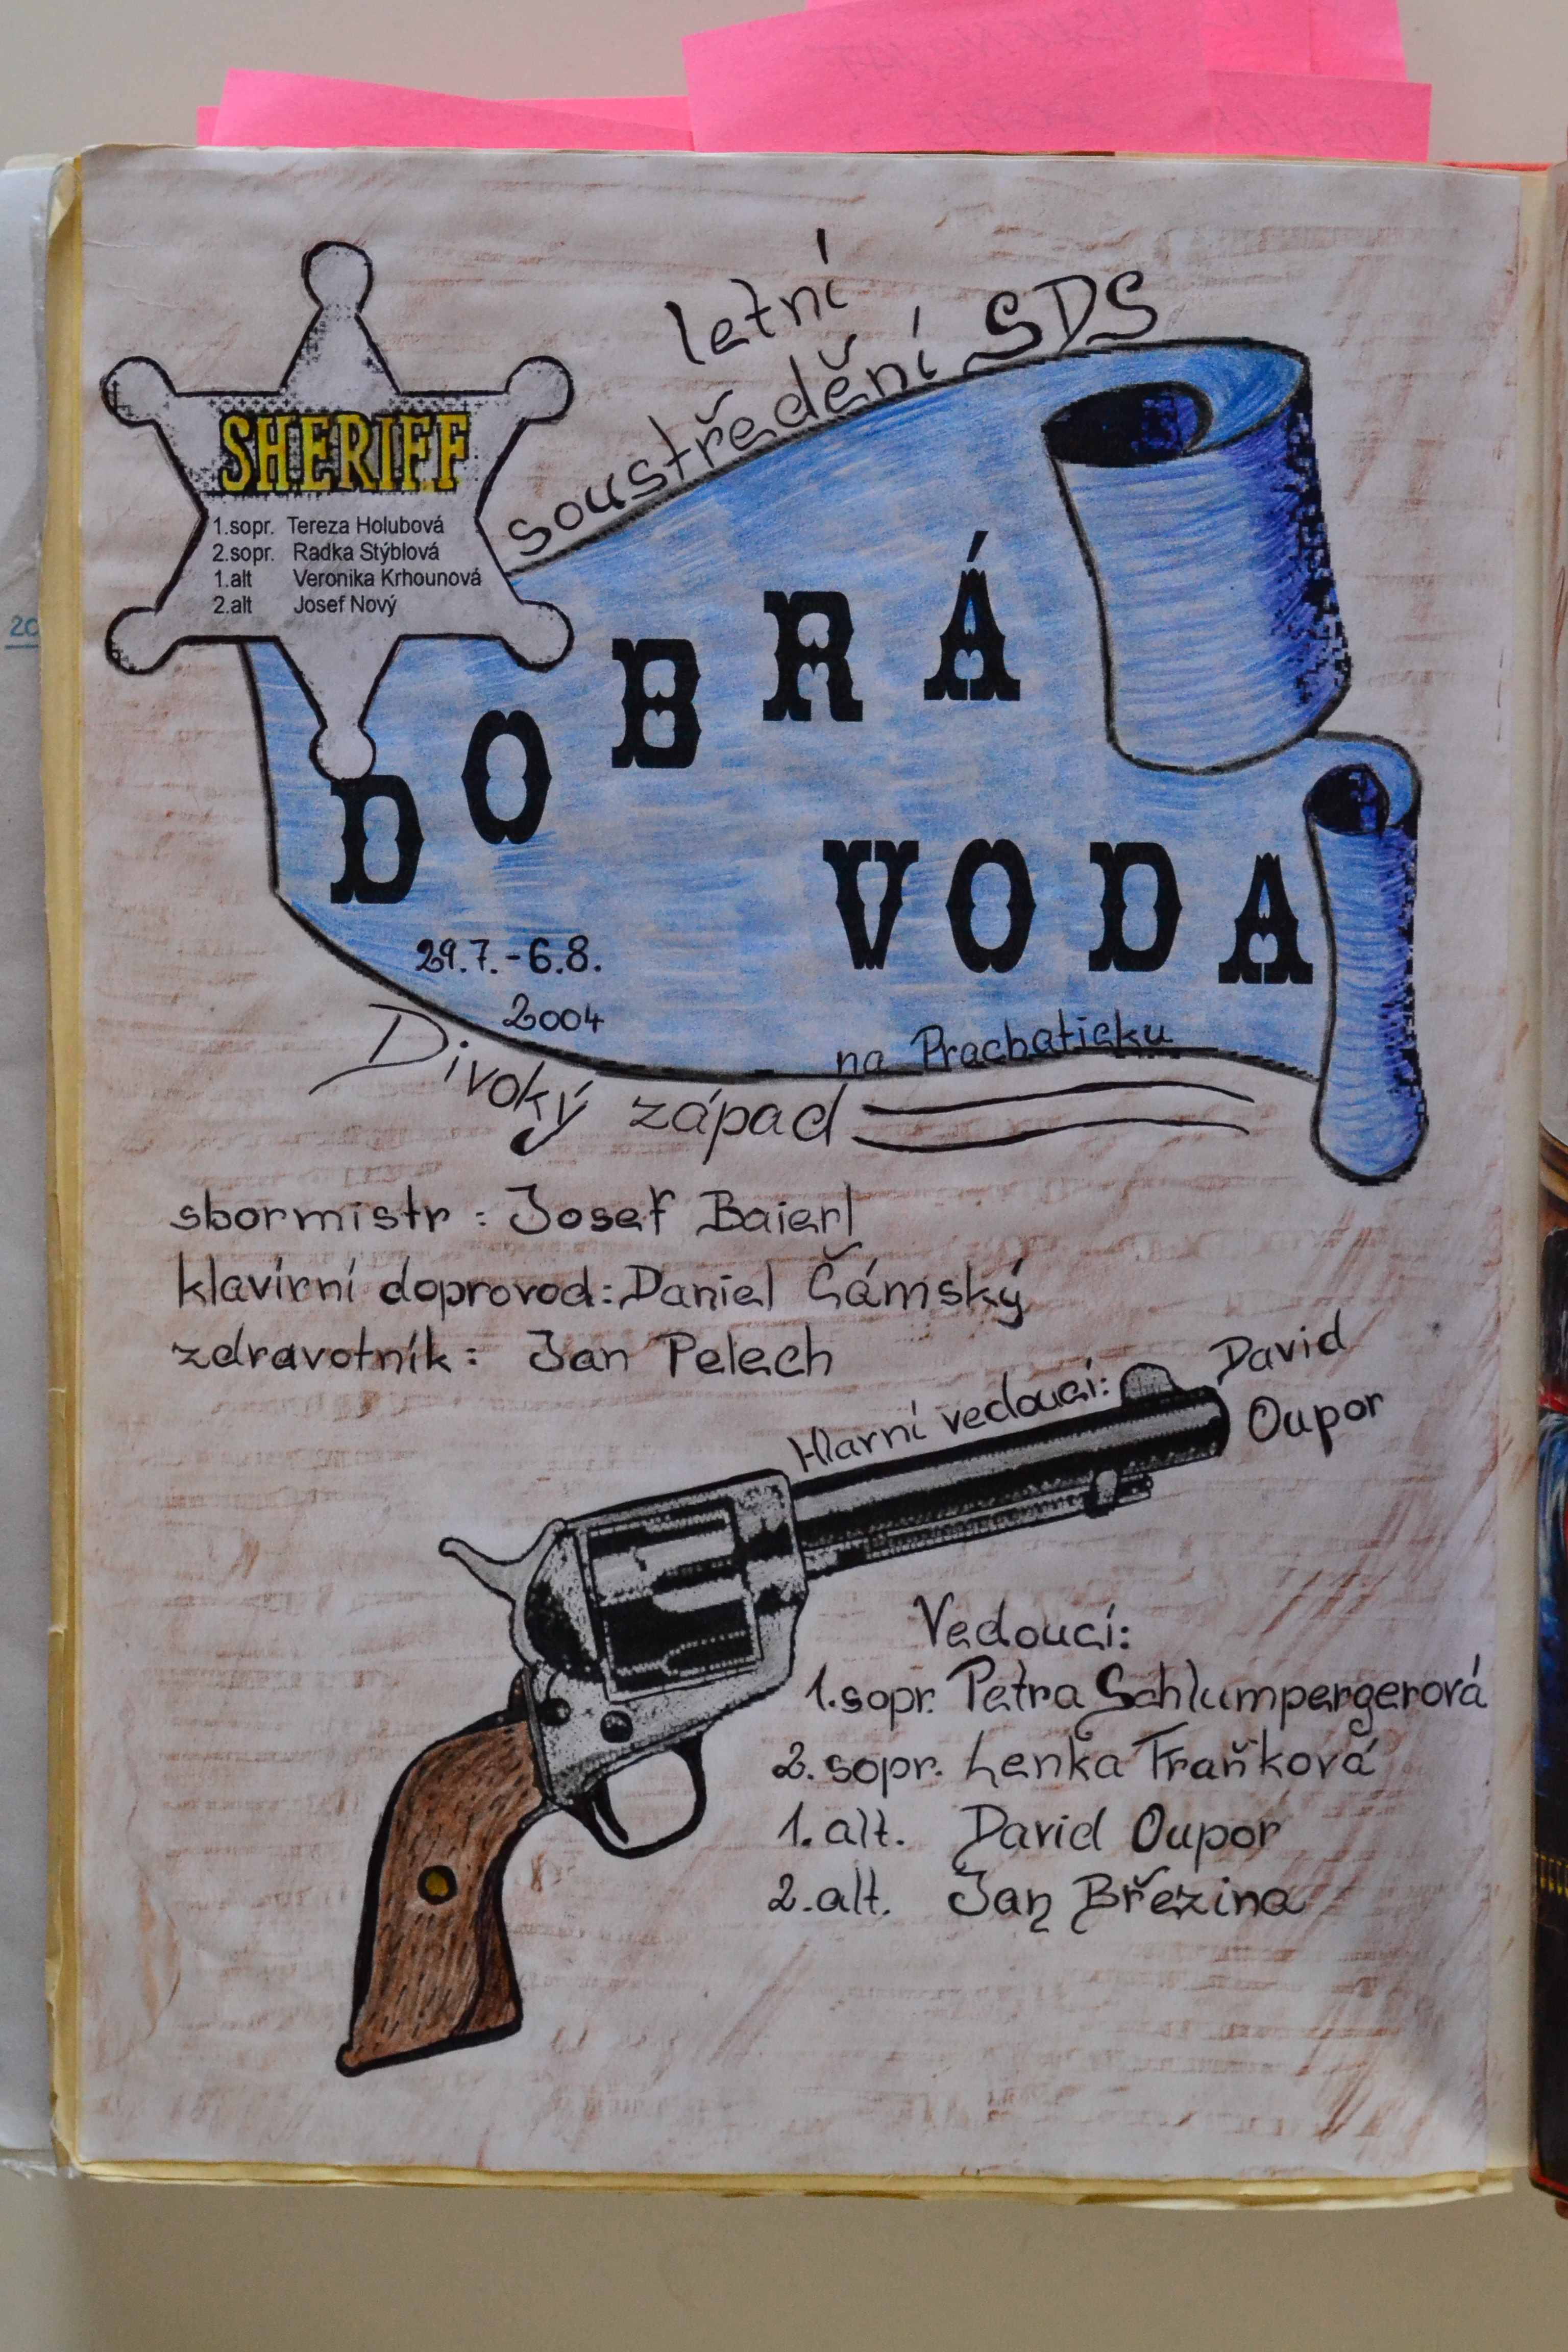 letní
soustředění SDS
SHERIFF
1.sopr. Tereza Holubová
2.sopr. Radka Stýblová
1.alt Veronika Krhounová
2.alt Josef Nový
DOBRÁ
VODA
29.7.-6.8.
2004
na Prachaticku
Divoký západ
sbormistr: Josef Baierl
klavírní doprovod: Daniel Čámský
zdravotník: Jan Pelech
Hlavní vedoucí: David
Oupor
Vedoucí:
1.sopr. Petra Schlumpergerová
2. sopr. Lenka Fraňková
1. alt. David Oupor
2. alt. Jan Březina
20